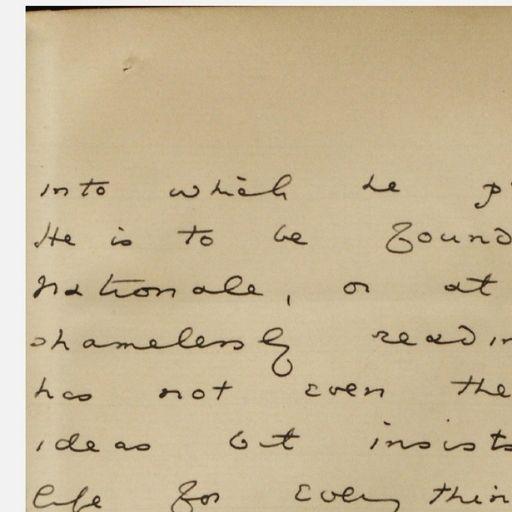 into which he p
He is to be found
Nationale, or at
shamelessly readin
has not even the
ideas but insists
life for every thin